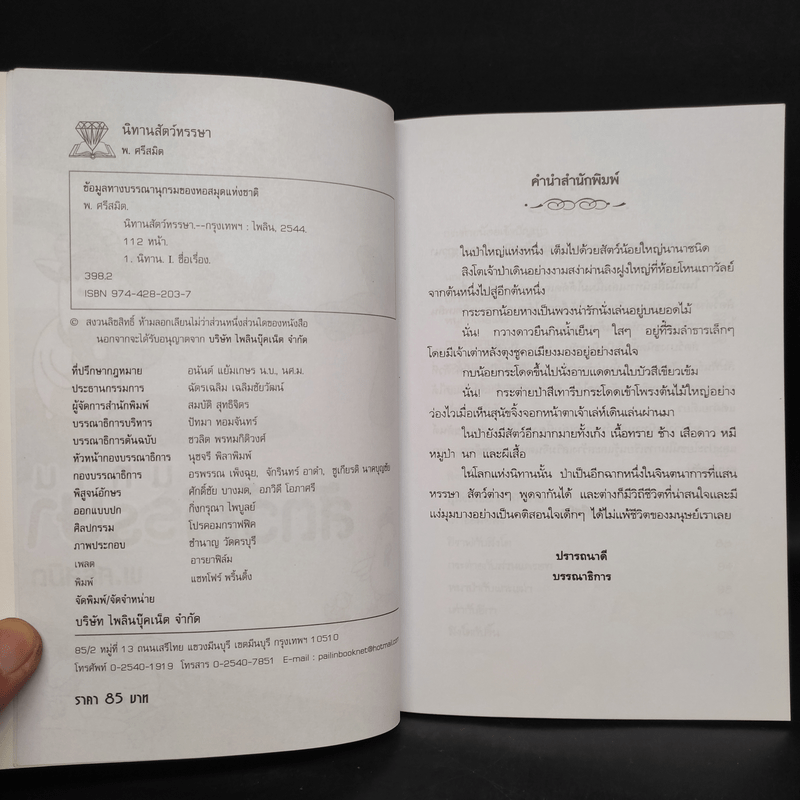 นิทานสัตว์หรรษา
พ. ศรีสมิต
ข้อมูลทางบรรณานุกรมของหอสมุดแห่งชาติ
พ. ศรีสมิต.
นิทานสัตว์หรรษา.--กรุงเทพฯ : ไพลิน, 2544.
112 หน้า.
1. นิทาน. I. ชื่อเรื่อง.
398.2
ISBN 974-428-203-7
© สงวนลิขสิทธิ์ ห้ามลอกเลียนไม่ว่าส่วนหนึ่งส่วนใดของหนังสือ
นอกจากจะได้รับอนุญาตจาก บริษัท ไพลินบุ๊คเน็ต จำกัด
ที่ปรึกษากฎหมาย อนันต์ แย้มเกษร น.บ., นศ.ม.
ประธานกรรมการ ฉัตรเฉลิม เฉลิมชัยวัฒน์
ผู้จัดการสำนักพิมพ์ สมบัติ สุทธิจิตร
บรรณาธิการบริหาร ปัทมา หอมจันทร์
บรรณาธิการต้นฉบับ ชวลิต พรหมกิติวงศ์
หัวหน้ากองบรรณาธิการ นุชจรี พิลาพิมพ์
กองบรรณาธิการ อรพรรณ เพ็งฉุย, จักรินทร์ อาดำ, ชูเกียรติ นาคบุญชัย
พิสูจน์อักษร ศักดิ์ชัย บางมด, อภวิดี โอภาศรี
ออกแบบปก กิ่งกรุณา ไพบูลย์
ศิลปกรรม โปรคอมกราฟฟิค
ภาพประกอบ ชำนาญ วัดครบุรี
เพลต อารยาฟิล์ม
พิมพ์ แซทโฟร์ พริ้นติ้ง
จัดพิมพ์/จัดจำหน่าย
บริษัท ไพลินบุ๊คเน็ต จำกัด
85/2 หมู่ที่ 13 ถนนเสรีไทย แขวงมีนบุรี เขตมีนบุรี กรุงเทพฯ 10510
โทรศัพท์ 0-2540-1919 โทรสาร 0-2540-7851 E-mail : pailinbooknet@hotmail.com
ราคา 85 บาท
คำนำสำนักพิมพ์
ในป่าใหญ่แห่งหนึ่ง เต็มไปด้วยสัตว์น้อยใหญ่นานาชนิด
สิงโตเจ้าป่าเดินอย่างงามสง่าผ่านลิงฝูงใหญ่ที่ห้อยโหนเถาวัลย์
จากต้นหนึ่งไปสู่อีกต้นหนึ่ง
กระรอกน้อยหางเป็นพวงน่ารักนั่งเล่นอยู่บนยอดไม้
นั่น! กวางดาวยืนกินน้ำเย็นๆ ใสๆ อยู่ที่ริมลำธารเล็กๆ
โดยมีเจ้าเต่าหลังตุงชูคอเมียงมองอยู่อย่างสนใจ
กบน้อยกระโดดขึ้นไปนั่งอาบแดดบนใบบัวสีเขียวเข้ม
นั่น! กระต่ายป่าสีเทารีบกระโดดเข้าโพรงต้นไม้ใหญ่อย่าง
ว่องไวเมื่อเห็นสุนัขจิ้งจอกหน้าตาเจ้าเล่ห์เดินเล่นผ่านมา
ในป่ายังมีสัตว์อีกมากมายทั้งเก้ง เนื้อทราย ช้าง เสือดาว หมี
หมูป่า นก และผีเสื้อ
ในโลกแห่งนิทานนั้น ป่าเป็นอีกฉากหนึ่งในจินตนาการที่แสน
หรรษา สัตว์ต่างๆ พูดจากันได้ และต่างก็มีวิถีชีวิตที่น่าสนใจและมี
แง่มุมบางอย่างเป็นคติสอนใจเด็กๆ ได้ไม่แพ้ชีวิตของมนุษย์เราเลย
ปรารถนาดี
บรรณาธิการ